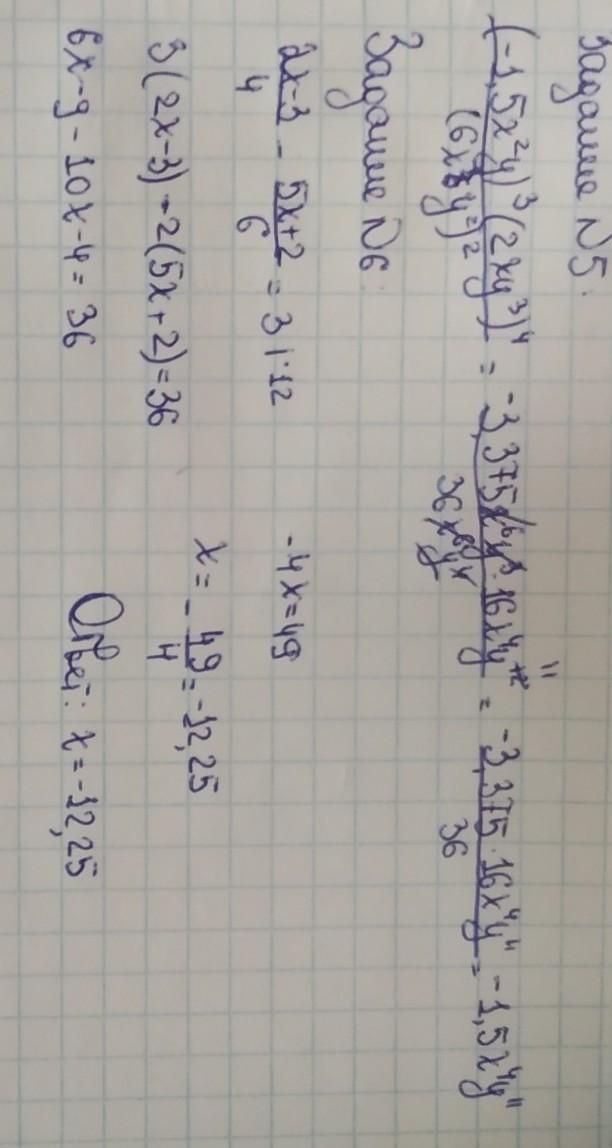 Задание N5:
(-1,5x²y)³(2xy³)⁴ / (6x³y²)² = -3,375x⁶y³·16x⁴y¹² / 36x⁶y⁴ = -3,375·16x⁴y¹¹ / 36 = -1,5x⁴y¹¹
Задание N6:
2x-3 / 4 - 5x+2 / 6 = 3 |·12
3(2x-3)-2(5x+2)=36
6x-9-10x-4=36
-4x=49
x=-49/4=-12,25
Ответ: x=-12,25